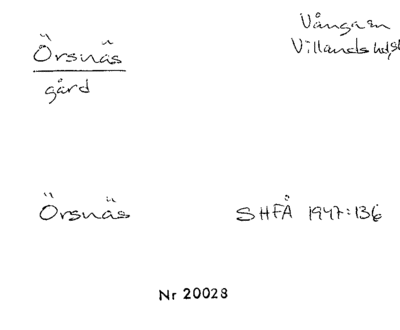 Örsnäs
gård
Vånga sn
Villands hd, sk
Örsnäs
SHFÅ 1947:136
Nr 20028